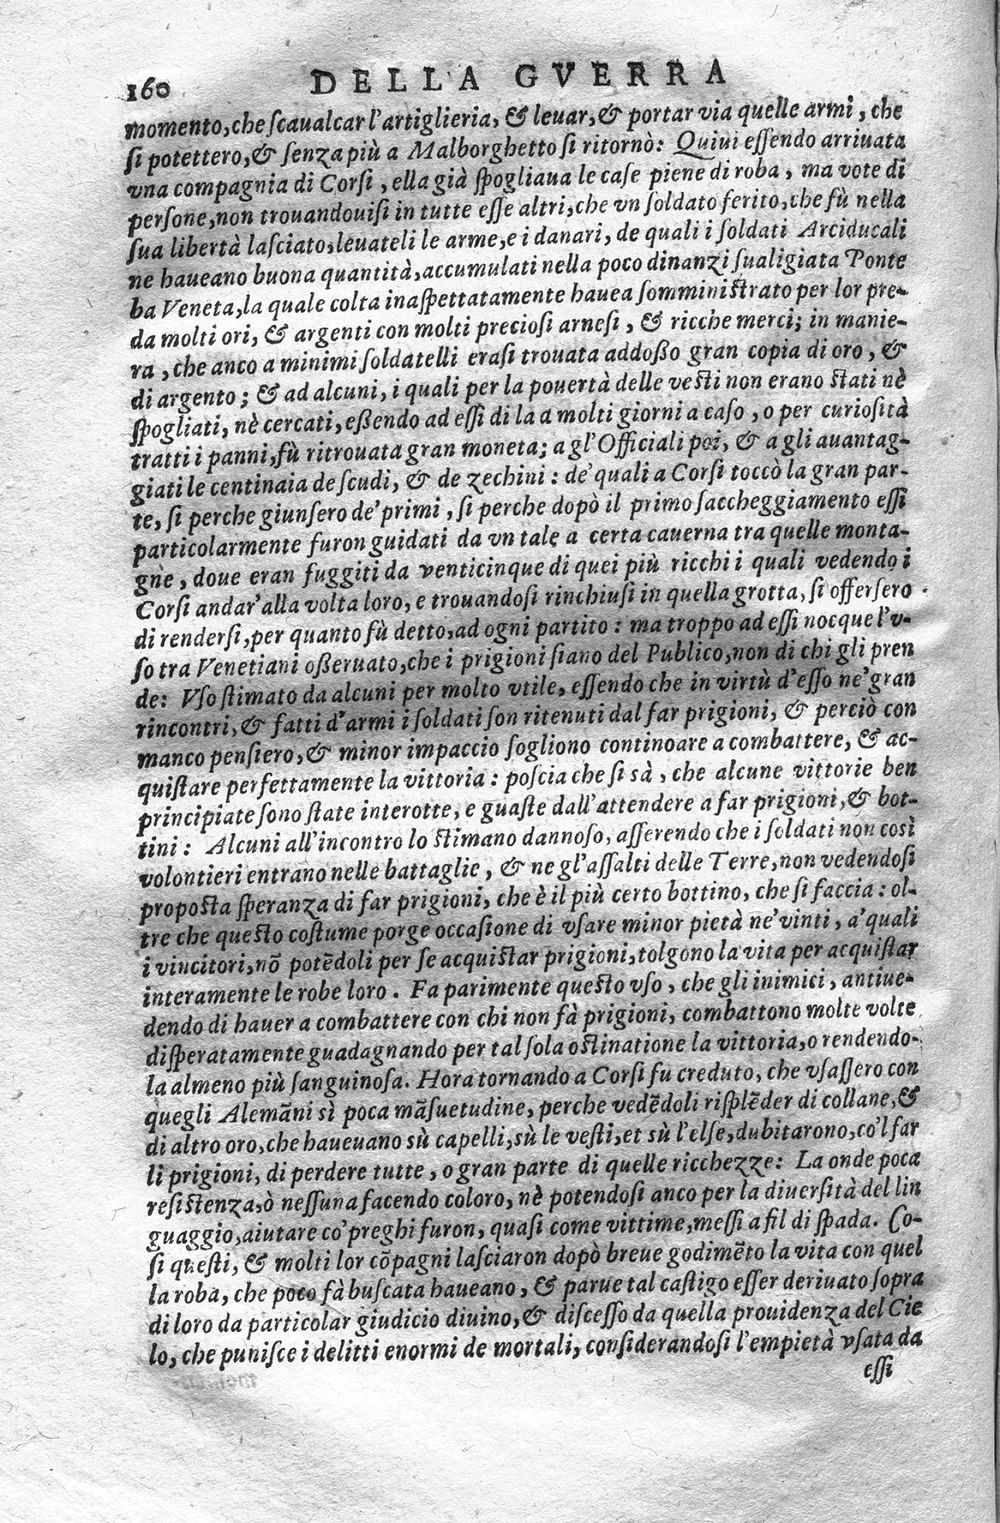 160 DELLA GVERRA
momento, che ſcaualcar l'artiglieria, & leuar, & portar via quelle armi, che
ſi potettero, & ſenza più a Malborghetto ſi ritornò: Quiui eſſendo arriuata
vna compagnia di Corſi, ella già ſpogliaua le caſe piene di roba, ma vote di
perſone, non trouandouiſi in tutte eſſe altri, che vn ſoldato ferito, che fù nella
ſua libertà laſciato, leuateli le arme, e i danari, de quali i ſoldati Arciducali
ne haueano buona quantità, accumulati nella poco dinanzi ſualigiata Ponte
ba Veneta, la quale colta inaſpettatamente hauea ſomminiſtrato per lor pre-
da molti ori, & argenti con molti precioſi arneſi, & ricche merci; in manie-
ra, che anco a minimi ſoldatelli eraſi trouata addoßo gran copia di oro, &
di argento; & ad alcuni, i quali per la pouertà delle veſti non erano ſtati nè
ſpogliati, nè cercati, eßendo ad eſſi di là a molti giorni a caſo, o per curioſità
tratti i panni, fù ritrouata gran moneta; a gl'Officiali poi, & a gli auantag-
giati le centinaia de ſcudi, & de zechini: de' quali a Corſi toccò la gran par-
te, ſi perche giunſero de' primi, ſi perche dopò il primo ſaccheggiamento eſſi
particolarmente furon guidati da vn tale a certa cauerna tra quelle monta-
gne, doue eran fuggiti da venticinque di quei più ricchi i quali vedendo i
Corſi andar' alla volta loro, e trouandoſi rinchiuſi in quella grotta, ſi offerſero
di renderſi, per quanto fù detto, ad ogni partito: ma troppo ad eſſi nocque l'v-
ſo tra Venetiani oßeruato, che i prigioni ſiano del Publico, non di chi gli pren
de: Vſo ſtimato da alcuni per molto vtile, eſſendo che in virtù d'eſſo ne' gran
rincontri, & fatti d'armi i ſoldati ſon ritenuti dal far prigioni, & perciò con
manco penſiero, & minor impaccio ſogliono continoare a combattere, & ac-
quiſtare perfettamente la vittoria: poſcia che ſi sà, che alcune vittorie ben
principiate ſono ſtate interotte, e guaſte dall'attendere a far prigioni, & bot-
tini: Alcuni all'incontro lo ſtimano dannoſo, aſſerendo che i ſoldati non così
volontieri entrano nelle battaglie, & ne gl'aſſalti delle Terre, non vedendoſi
propoſta ſperanza di far prigioni, che è il più certo bottino, che ſi faccia: ol-
tre che queſto coſtume porge occaſione di vſare minor pietà ne' vinti, a' quali
i vincitori, nõ potẽdoli per ſe acquiſtar prigioni, tolgono la vita per acquiſtar
interamente le robe loro. Fa parimente queſto vſo, che gli inimici, antiue-
dendo di hauer a combattere con chi non fà prigioni, combattono molte volte
diſperatamente guadagnando per tal ſola oſtinatione la vittoria, o rendendo-
la almeno più ſanguinoſa. Hora tornando a Corſi fu creduto, che vſaſſero con
quegli Alemãni sì poca mãſuetudine, perche vedẽdoli riſplẽder di collane, &
di altro oro, che haueuano sù capelli, sù le veſti, et sù l'elſe, dubitarono, co'l far
li prigioni, di perdere tutte, o gran parte di quelle ricchezze: La onde poca
reſiſtenza, ò neſſuna facendo coloro, nè potendoſi anco per la diuerſità del lin
guaggio, aiutare co' preghi furon, quaſi come vittime, meſſi a fil di ſpada. Co-
ſi queſti, & molti lor cõpagni laſciaron dopò breue godimẽto la vita con quel
la roba, che poco fà buſcata haueano, & parue tal caſtigo eſſer deriuato ſopra
di loro da particolar giudicio diuino, & diſceſſo da quella prouidenza del Cie
lo, che puniſce i delitti enormi de mortali, conſiderandoſi l'empietà vſata da
eſſi